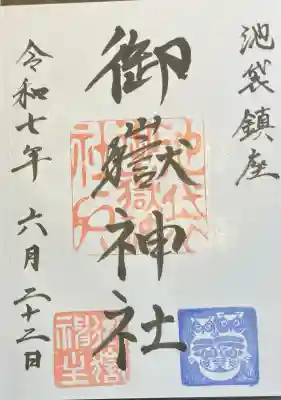 池袋鎮座
御嶽神社
令和七年 六月二十二日